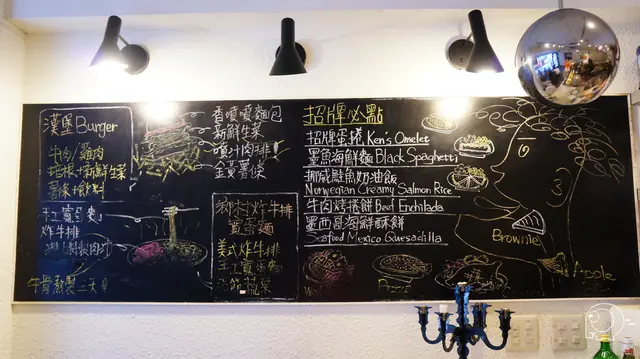 漢堡 Burger
牛肉/雞肉
搭檔+新鮮生菜
薯條+飲料
手工寬蛋麵
炸牛排
牛骨熬製三天
香噴噴麵包
新鮮生菜
噴汁肉排
金黃薯條
鄉村炸牛排
寬蛋麵
美式炸牛排
手工寬蛋麵
招牌必點
招牌蛋捲 Ken's Omelet
墨魚海鮮麵 Black Spaghetti
挪威鮭魚奶油飯
Norwegian Creamy Salmon Rice
牛肉烤捲餅 Beef Enchilada
墨西哥海鮮酥餅
Seafood Mexico Quesadilla
Brownie
Apple